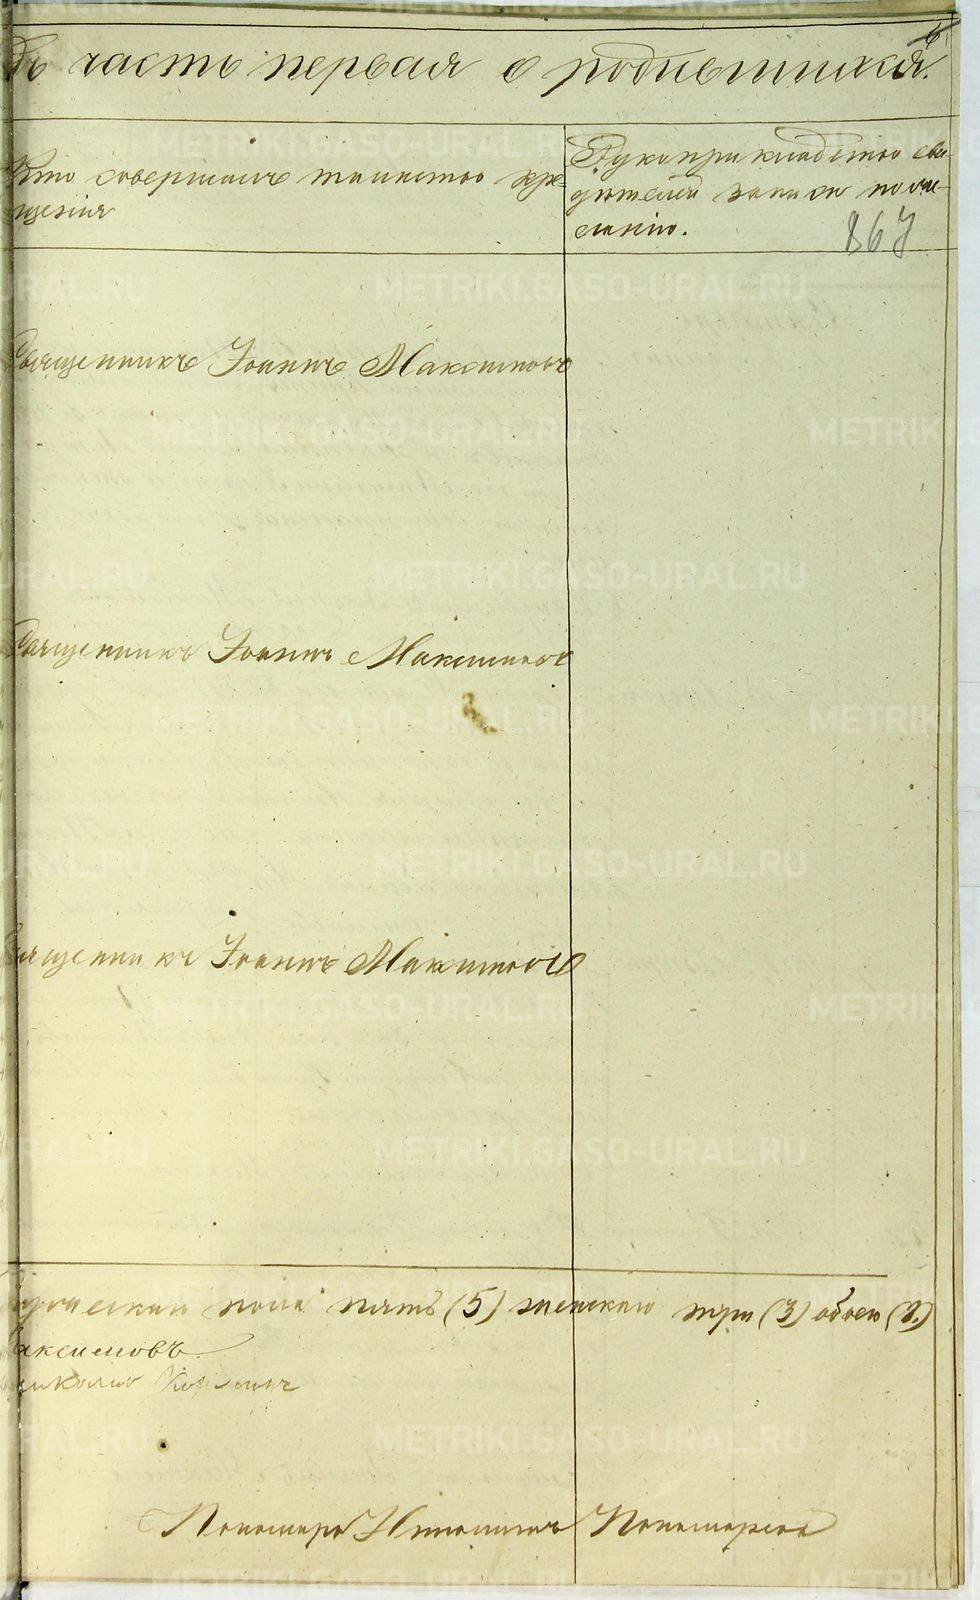 6
дъ часть первая о родившихся.
Кто совершалъ таинство кре-
щенія
Рукоприкладство сви-
дѣтелей записи по же-
ланію.
867
Священникъ Іоаннъ Максимовъ
Священникъ Іоаннъ Максимовъ
Священникъ Іоаннъ Максимовъ
мужескаго пола пять (5) женскаго три (3) обоего (8.)
аксимовъ
Пономарь Пономарева
METRIKI.GASO-URAL.RU